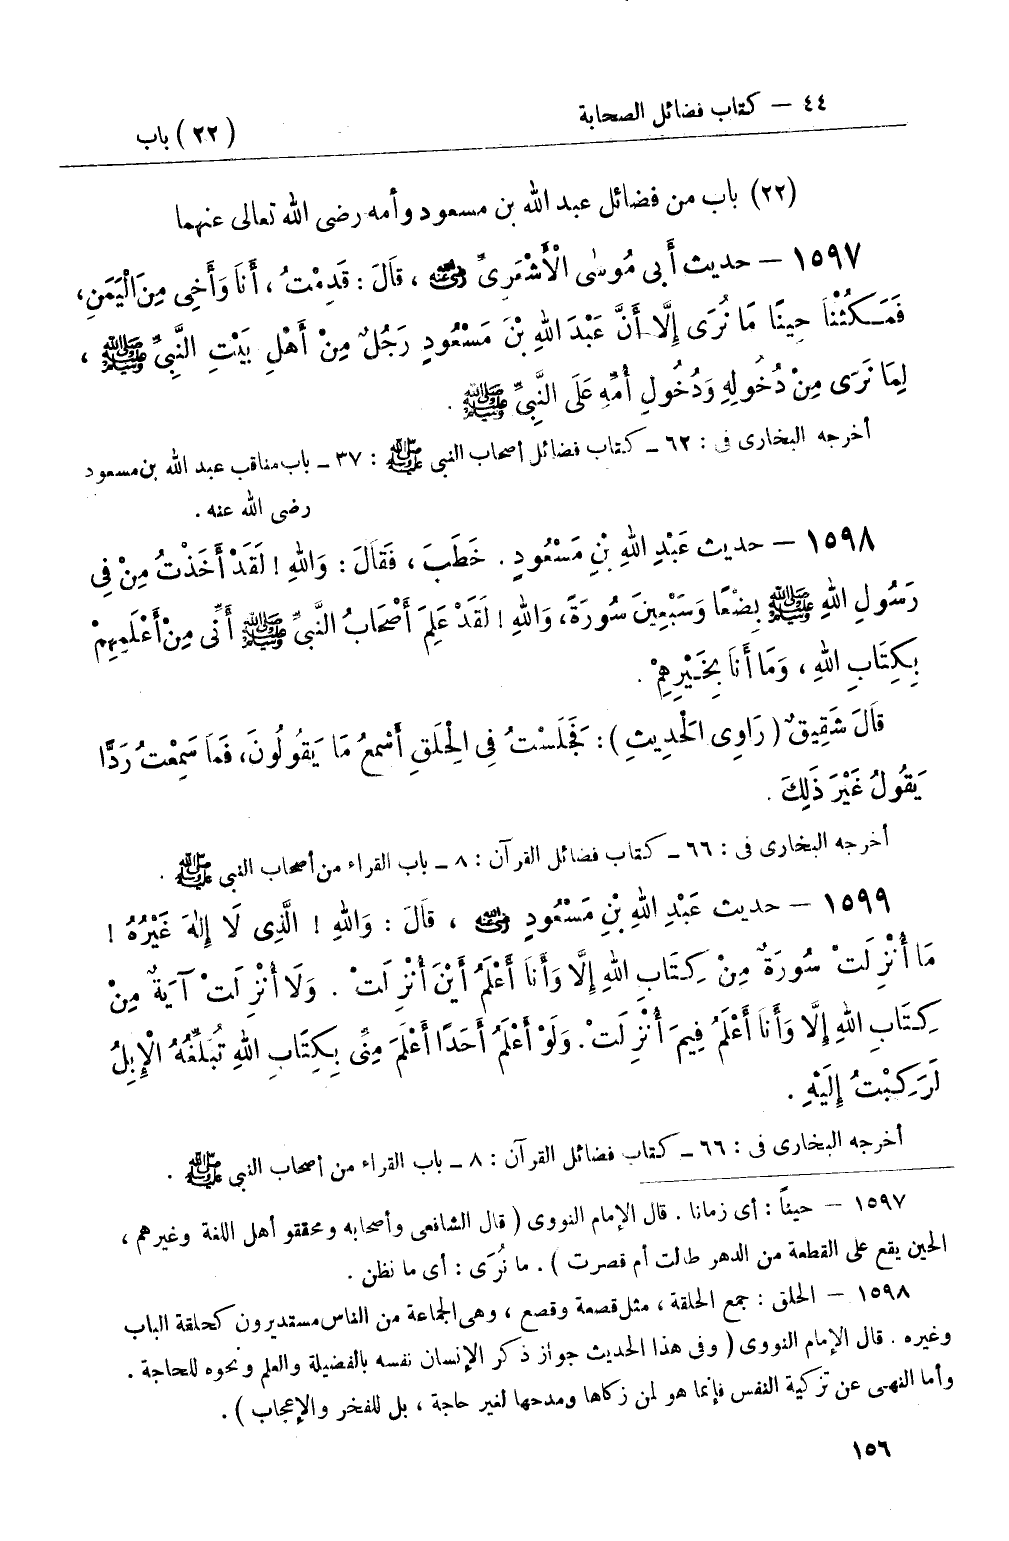 ٤٤ — كتاب فضائل الصحابة
(٢٢) باب
(٢٢) باب من فضائل عبد الله بن مسعود وأمه رضى الله تعالى عنهما
١٥٩٧ — حديث أَبِى مُوسٰى الْأَشْعَرِىِّ رضي الله عنه ، قَالَ : قَدِمْتُ ، أَنَا وَأَخِى مِنَ الْيَمَنِ ،
فَمَكُثْنَا حِينًا مَا نُرَى إِلَّا أَنَّ عَبْدَ اللهِ بْنَ مَسْعُودٍ رَجُلٌ مِنْ أَهْلِ بَيْتِ النَّبِىِّ ﷺ ،
لِمَا نَرَى مِنْ دُخُولِهِ وَدُخُولِ أُمِّهِ عَلَى النَّبِىِّ ﷺ .
أخرجه البخارى فى : ٦٢ ـ كتاب فضائل أصحاب النبى ﷺ : ٣٧ ـ باب مناقب عبد الله بن مسعود
رضى الله عنه .
١٥٩٨ — حديث عَبْدِ اللهِ بْنِ مَسْعُودٍ . خَطَبَ ، فَقَالَ : وَاللهِ ! لَقَدْ أَخَذْتُ مِنْ فِى
رَسُولِ اللهِ ﷺ بِضْعًا وَسَبْعِينَ سُورَةً، وَاللهِ ! لَقَدْ عَلِمَ أَصْحَابُ النَّبِىِّ ﷺ أَنِّى مِنْ أَعْلَمِهِمْ
بِكِتَابِ اللهِ ، وَمَا أَنَا بِخَيْرِهِمْ .
قَالَ شَقِيقٌ ( رَاوِى الْحَدِيثِ ) : فَجَلَسْتُ فِى الْحِلَقِ أَسْمَعُ مَا يَقُولُونَ، فَمَا سَمِعْتُ رَدًّا
يَقُولُ غَيْرَ ذَلِكَ .
أخرجه البخارى فى : ٦٦ ـ كتاب فضائل القرآن : ٨ ـ باب القراء من أصحاب النبى ﷺ .
١٥٩٩ — حديث عَبْدِ اللهِ بْنِ مَسْعُودٍ رضي الله عنه ، قَالَ : وَاللهِ ! الَّذِى لَا إِلٰهَ غَيْرُهُ !
مَا أُنْزِلَتْ سُورَةٌ مِنْ كِتَابِ اللهِ إِلَّا وَأَنَا أَعْلَمُ أَيْنَ أُنْزِلَتْ . وَلَا أُنْزِلَتْ آيَةٌ مِنْ
كِتَابِ اللهِ إِلَّا وَأَنَا أَعْلَمُ فِيمَ أُنْزِلَتْ . وَلَوْ أَعْلَمُ أَحَدًا أَعْلَمَ مِنِّى بِكِتَابِ اللهِ تُبَلِّغُهُ الْإِبِلُ
لَرَكِبْتُ إِلَيْهِ .
أخرجه البخارى فى : ٦٦ ـ كتاب فضائل القرآن : ٨ ـ باب القراء من أصحاب النبى ﷺ .
١٥٩٧ — حيناً : أى زمانا . قال الإمام النووى ( قال الشافعى وأصحابه ومحققو أهل اللغة وغيرهم ،
الحين يقع على القطعة من الدهر طالت أم قصرت ) . ما نُرَى : أى ما نظن .
١٥٩٨ — الحلق : جمع الحلقة ، مثل قصعة وقصع ، وهى الجماعة من الناس مستديرون كحلقة الباب
وغيره . قال الإمام النووى ( وفى هذا الحديث جواز ذكر الإنسان نفسه بالفضيلة والعلم ونحوه للحاجة .
وأما النهى عن تزكية النفس فإنما هو لمن زكاها ومدحها لغير حاجة ، بل للفخر والإعجاب ) .
١٥٦